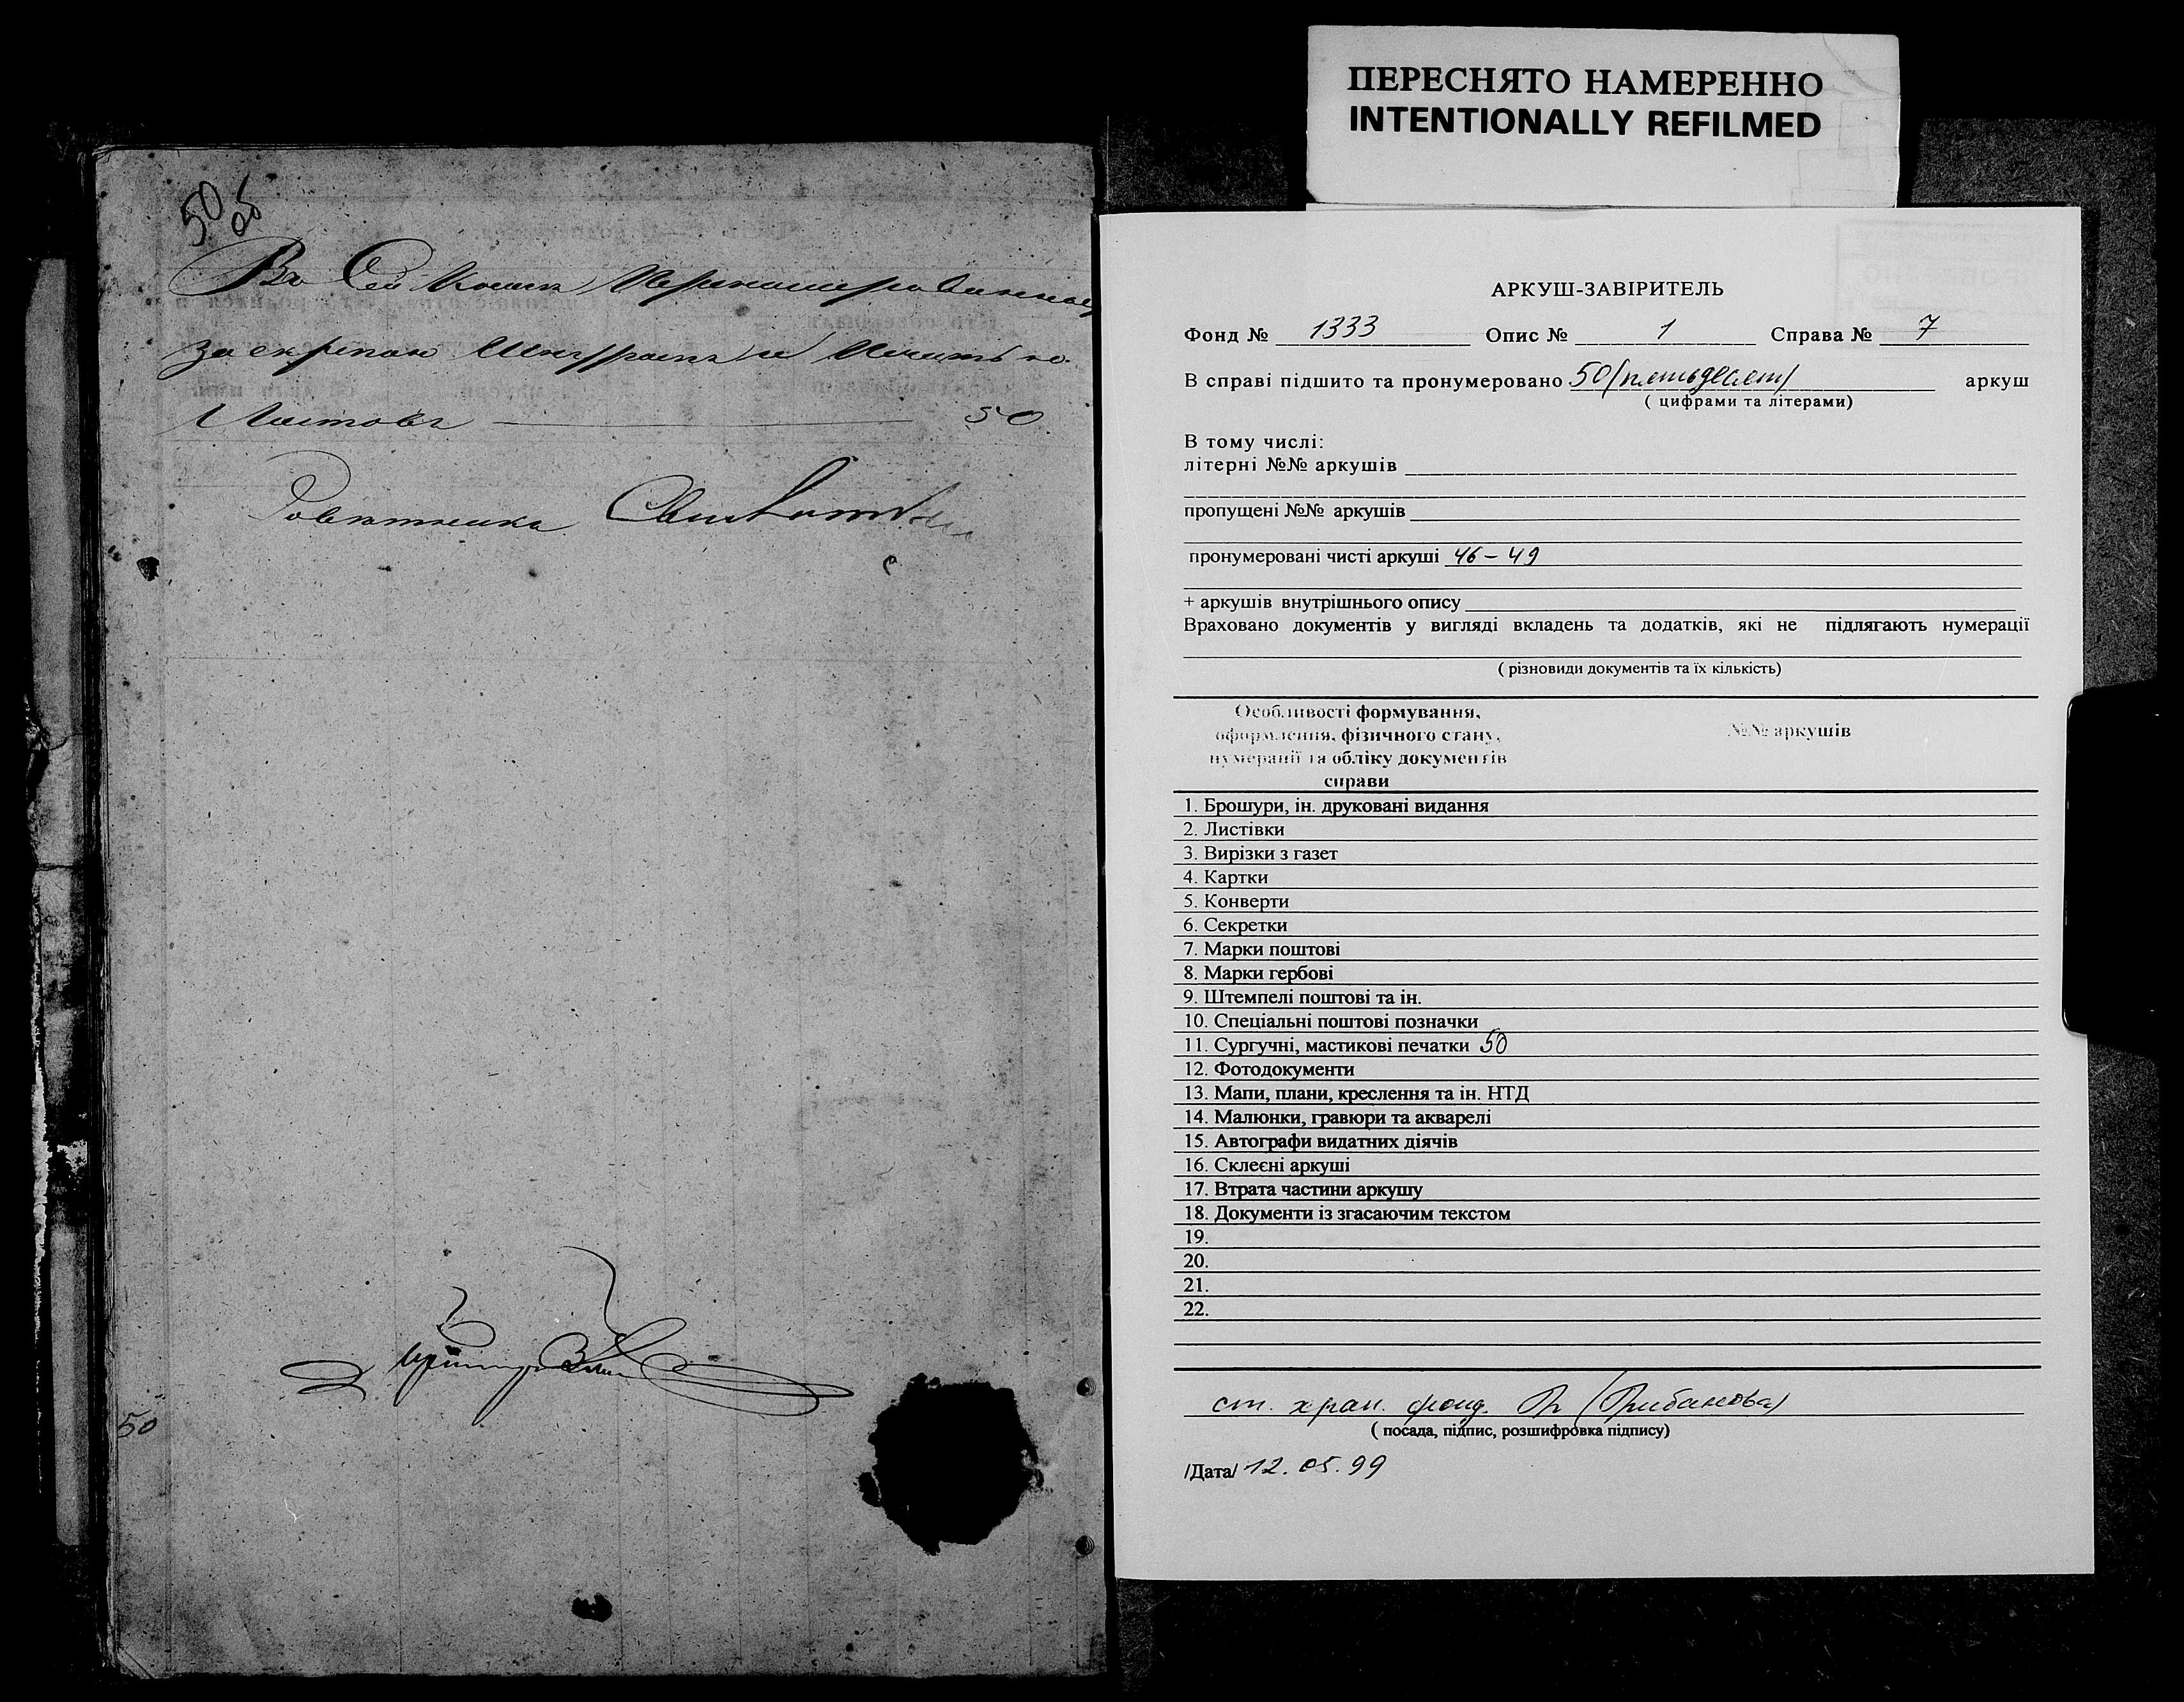 50 об
Въ Сей Книгѣ Перенумерованныхъ
за скрепою Шнуромъ и Печатью
Листовъ 50.
Совѣтника
50
ПЕРЕСНЯТО НАМЕРЕННО
INTENTIONALLY REFILMED
АРКУШ-ЗАВІРИТЕЛЬ
Фонд № 1333 Опис № 1 Справа № 7
В справі підшито та пронумеровано 50/пятьдесят/ аркуш
( цифрами та літерами)
В тому числі:
літерні №№ аркушів
пропущені №№ аркушів
пронумеровані чисті аркуші 46 – 49
+ аркушів внутрішнього опису
Враховано документів у вигляді вкладень та додатків, які не підлягають нумерації
( різновиди документів та їх кількість)
Особливості формування, оформлення, фізичного стану, нумерації та обліку документів справи
№№ аркушів
1. Брошури, ін. друковані видання
2. Листівки
3. Вирізки з газет
4. Картки
5. Конверти
6. Секретки
7. Марки поштові
8. Марки гербові
9. Штемпелі поштові та ін.
10. Спеціальні поштові позначки
11. Сургучні, мастикові печатки 50
12. Фотодокументи
13. Мапи, плани, креслення та ін. НТД
14. Малюнки, гравюри та акварелі
15. Автографи видатних діячів
16. Склеєні аркуші
17. Втрата частини аркушу
18. Документи із згасаючим текстом
19.
20.
21.
22.
ст. хран. фонд. (Грибанова)
( посада, підпис, розшифровка підпису)
/Дата/ 12. 05. 99